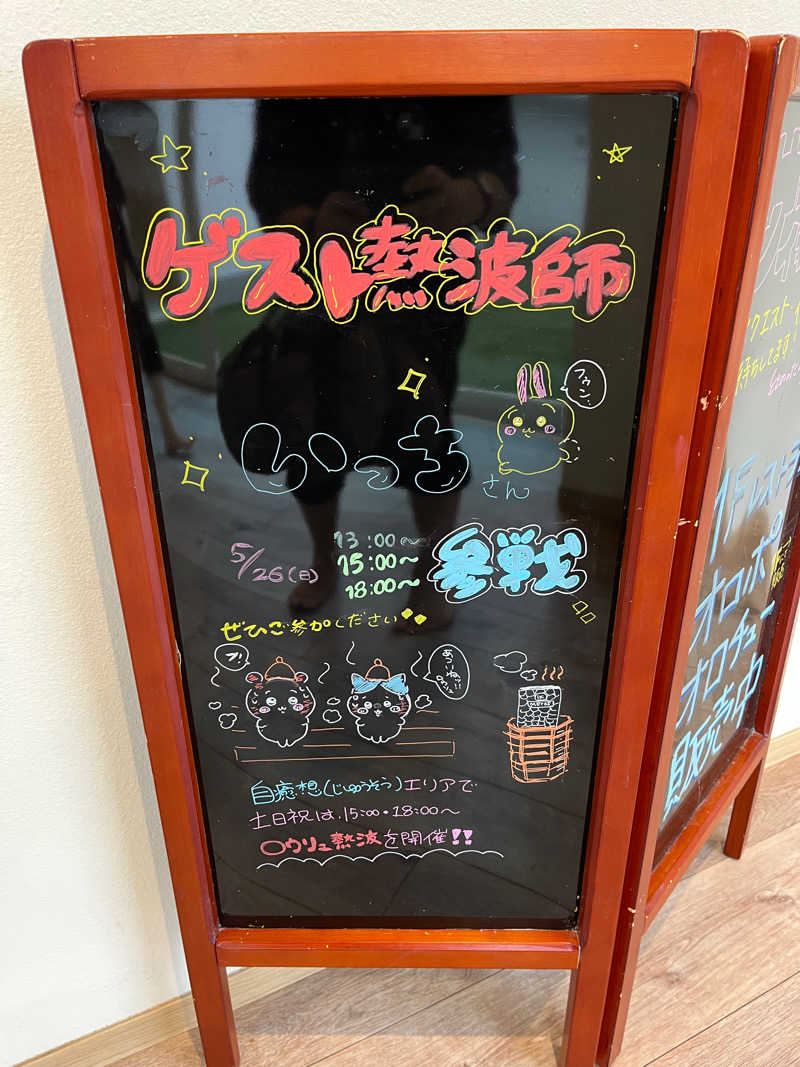 ゲスト熱波師
フゥン…
いっち
さん
5/26(日)
13:00〜
15:00〜
18:00〜
参戦
ぜひご参加ください
フ!
自癒想(じゆうそう)エリアで
土日祝は、15:00・18:00〜
〇ウリュ熱波を開催!!
1Fレストラ
オロポ
オロチュー
販売中